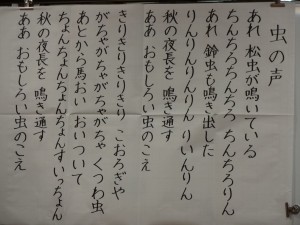 虫の声
あれ 松虫が鳴いている
ちんちろちんちろ ちんちろりん
あれ 鈴虫も鳴き出した
りんりんりんりん りいんりん
秋の夜長を 鳴き通す
ああ おもしろい虫のこえ
きりきりきりきり こおろぎや
がちゃがちゃがちゃがちゃ くつわ虫
あとから馬おい おいついて
ちょんちょんちょんちょん すいっちょん
秋の夜長を 鳴き通す
ああ おもしろい虫のこえ